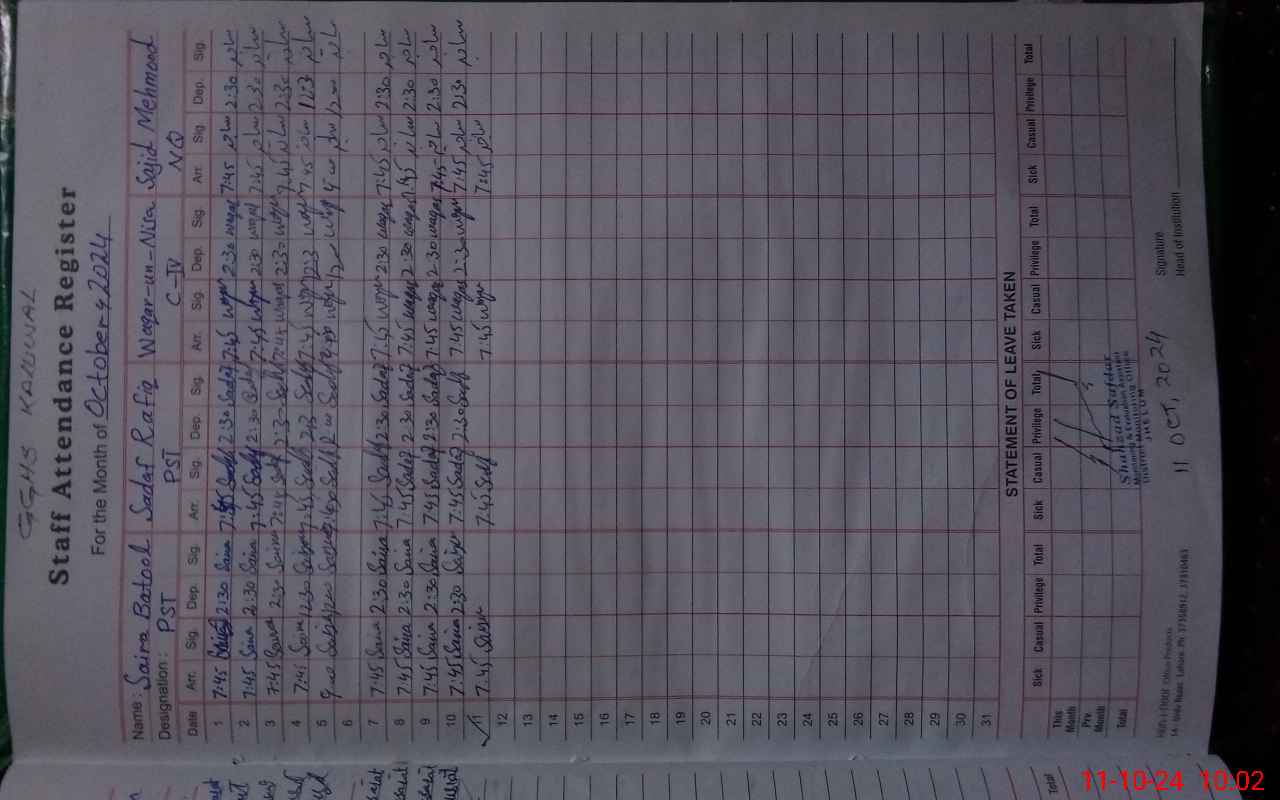 GGHS KALUWAL
Staff Attendance Register
For the Month of October, 2024
Name: Saira Batool Sadaf Rafiq Waqar-un-Nisa Sajid Mehmood
Designation: PST PST C-IV NQ
Date Arr. Sig. Dep. Sig. Arr. Sig. Dep. Sig. Arr. Sig. Dep. Sig. Arr. Sig. Dep. Sig.
1 7:45 2:30 Saira 7:45 Sadaf 2:30 Sadaf 7:45 Waqar 2:30 Waqar 7:45 ساجد 2:30 ساجد
2 7:45 Saira 2:30 Saira 7:45 Sadaf 2:30 Sadaf 7:45 Waqar 2:30 Waqar 7:45 ساجد 2:30 ساجد
3 7:45 Saira 2:30 Saira 7:45 Sadaf 2:30 Sadaf 7:45 Waqar 2:30 Waqar 7:45 ساجد 2:30 ساجد
4 7:45 Saira 2:30 Saira 7:45 Sadaf 7:45 Waqar 7:45 ساجد ساجد
5 Saira Sadaf Sadaf Waqar ساجد ساجد
6
7 7:45 Saira 2:30 Saira 7:45 Sadaf 2:30 Sadaf 7:45 Waqar 2:30 Waqar 7:45 ساجد 2:30 ساجد
8 7:45 Saira 2:30 Saira 7:45 Sadaf 2:30 Sadaf 7:45 Waqar 2:30 Waqar 7:45 ساجد 2:30 ساجد
9 7:45 Saira 2:30 Saira 7:45 Sadaf 2:30 Sadaf 7:45 Waqar 2:30 Waqar 7:45 ساجد 2:30 ساجد
10 7:45 Saira 2:30 Saira 7:45 Sadaf 2:30 Sadaf 7:45 Waqar 2:30 Waqar 7:45 ساجد 2:30 ساجد
11 7:45 Saira 7:45 Sadaf 7:45 Waqar 7:45 ساجد
12
13
14
15
16
17
18
19
20
21
22
23
24
25
26
27
28
29
30
31
STATEMENT OF LEAVE TAKEN
Sick Casual Privilege Total Sick Casual Privilege Total Sick Casual Privilege Total Sick Casual Privilege Total
This Month
Pre. Month
Total
Shahzad Safdar
Monitoring & Evaluation Assistant
District Monitoring Office
JHELUM
11 OCT, 2024
Signature
Head of Institution
Total
11-10-24 10:02